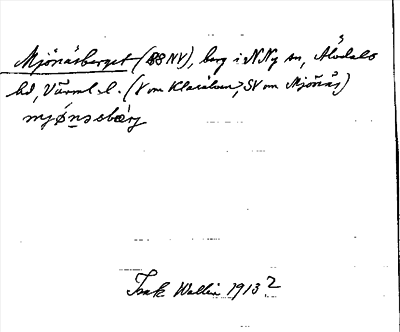 Mjönäsberget (88 NV), berg i N Ny sn, Älvdals
hd, Värml. l. (V om Klarälven, SV om Mjönäs)
mjǿnəsbærj
Isak Wallin 1913?